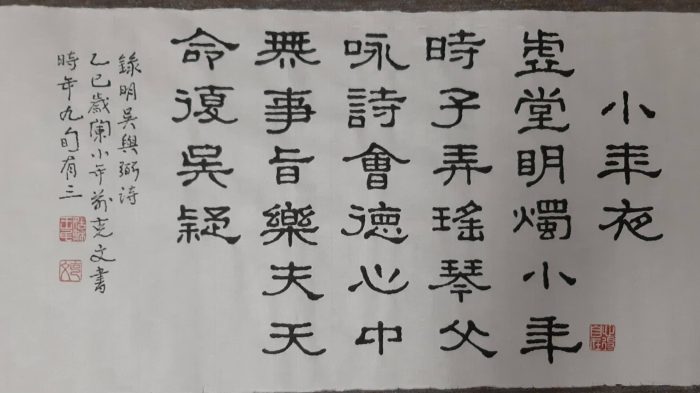 小年夜
虛堂明燭小年
時子弄瑤琴父
咏詩會德心中
無事旨樂夫天
命復吳疑
錄明吳與弼詩
乙巳歲闌小年前克文書
時年九旬有三